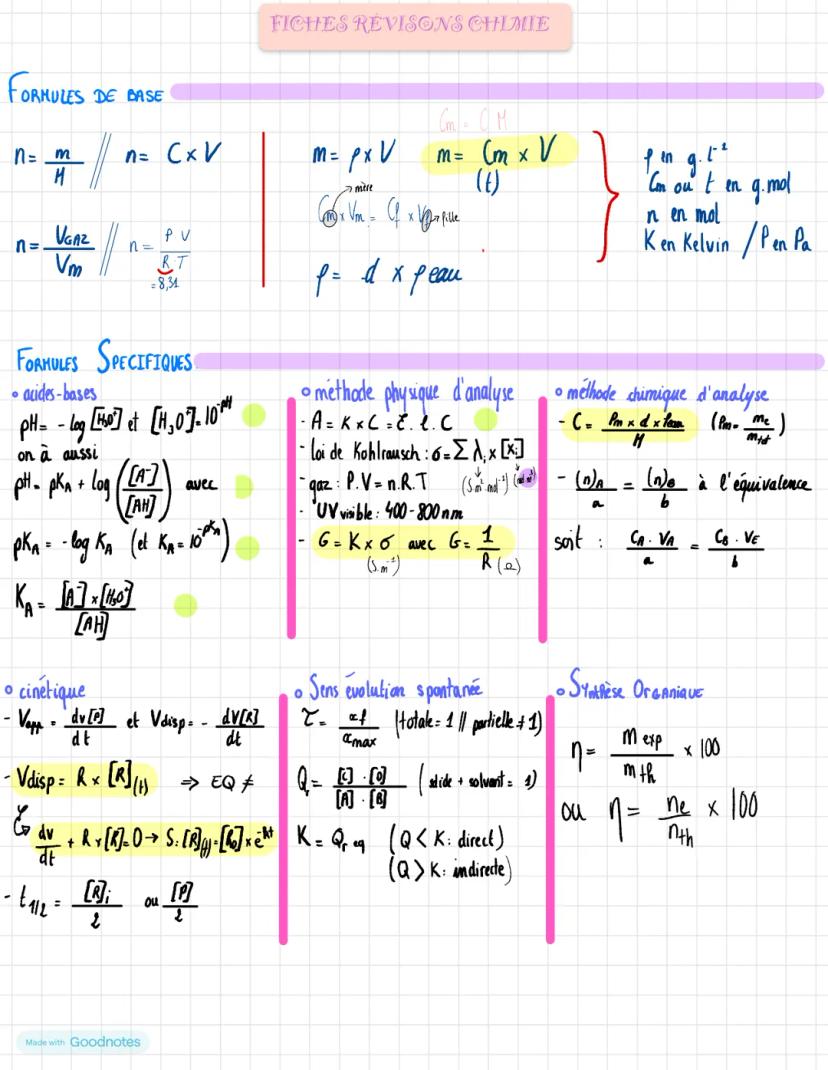 FICHES RÉVISONS CHIMIE
FORMULES DE BASE
n = m/M // n = C x V
n = VGAZ/Vm // n = P V/R.T
= 8,31
Cm = C M
m = ρ x V m = Cm x V
(t)
mère
Cm x Vm = Cf x Vf → fille
ρ = d x ρ eau
ρ en g.L⁻¹
Cm ou t en g.mol
n en mol
K en Kelvin / P en Pa
FORMULES SPECIFIQUES
° acides-bases
pH = - log [H3O⁺] et [H3O⁺] = 10^-pH
on à aussi
pH = pKA + log ([A⁻]/[AH]) avec
pKA = - log KA (et KA = 10^-pKA)
KA = [A⁻] x [H3O⁺]/[AH]
° méthode physique d'analyse
- A = K x C = ε. l. C
- Loi de Kohlrausch : σ = Σ λi x [Xi]
(S.m².mol⁻¹) (mol.m⁻³)
- gaz : P.V = n.R.T
- UV visible : 400-800 nm
- G = K x σ avec G = 1/R (Ω)
(S.m⁻¹)
° méthode chimique d'analyse
- C = Pm x d x ρeau/M (Pm = me/mtot)
- (n)A/a = (n)B/b à l'équivalence
soit : CA . VA/a = CB . VE/b
° cinétique
- Vapp = dv[P]/dt et Vdisp = - dV[R]/dt
- Vdisp = R x [R](t) ⇒ EQ ≠
↳ dv/dt + R x [R] = 0 → S : [R](t) = [R0] x e^-kt
- t1/2 = [R]i/2 ou [P]/2
° Sens évolution spontanée
τ = xf/xmax (totale = 1 // partielle ≠ 1)
Qr = [C] . [D]/[A] . [B] (slide + solvant = 1)
K = Qr eq (Q < K : direct)
(Q > K : indirecte)
° SYNTHÈSE ORGANIQUE
η = m exp/m th x 100
ou η = ne/nth x 100
Made with Goodnotes